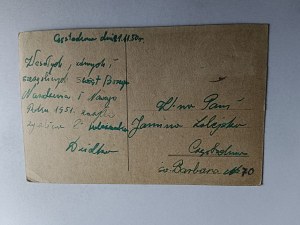 Częstochowa dnia 21.12.50r.
Wesołych, zdrowych i
szczęśliwych Świąt Bożego
Narodzenia i Nowego
Roku 1951
życzą
Dudko
W-na Pani
Janina
Częstochowa
św. Barbara № 70